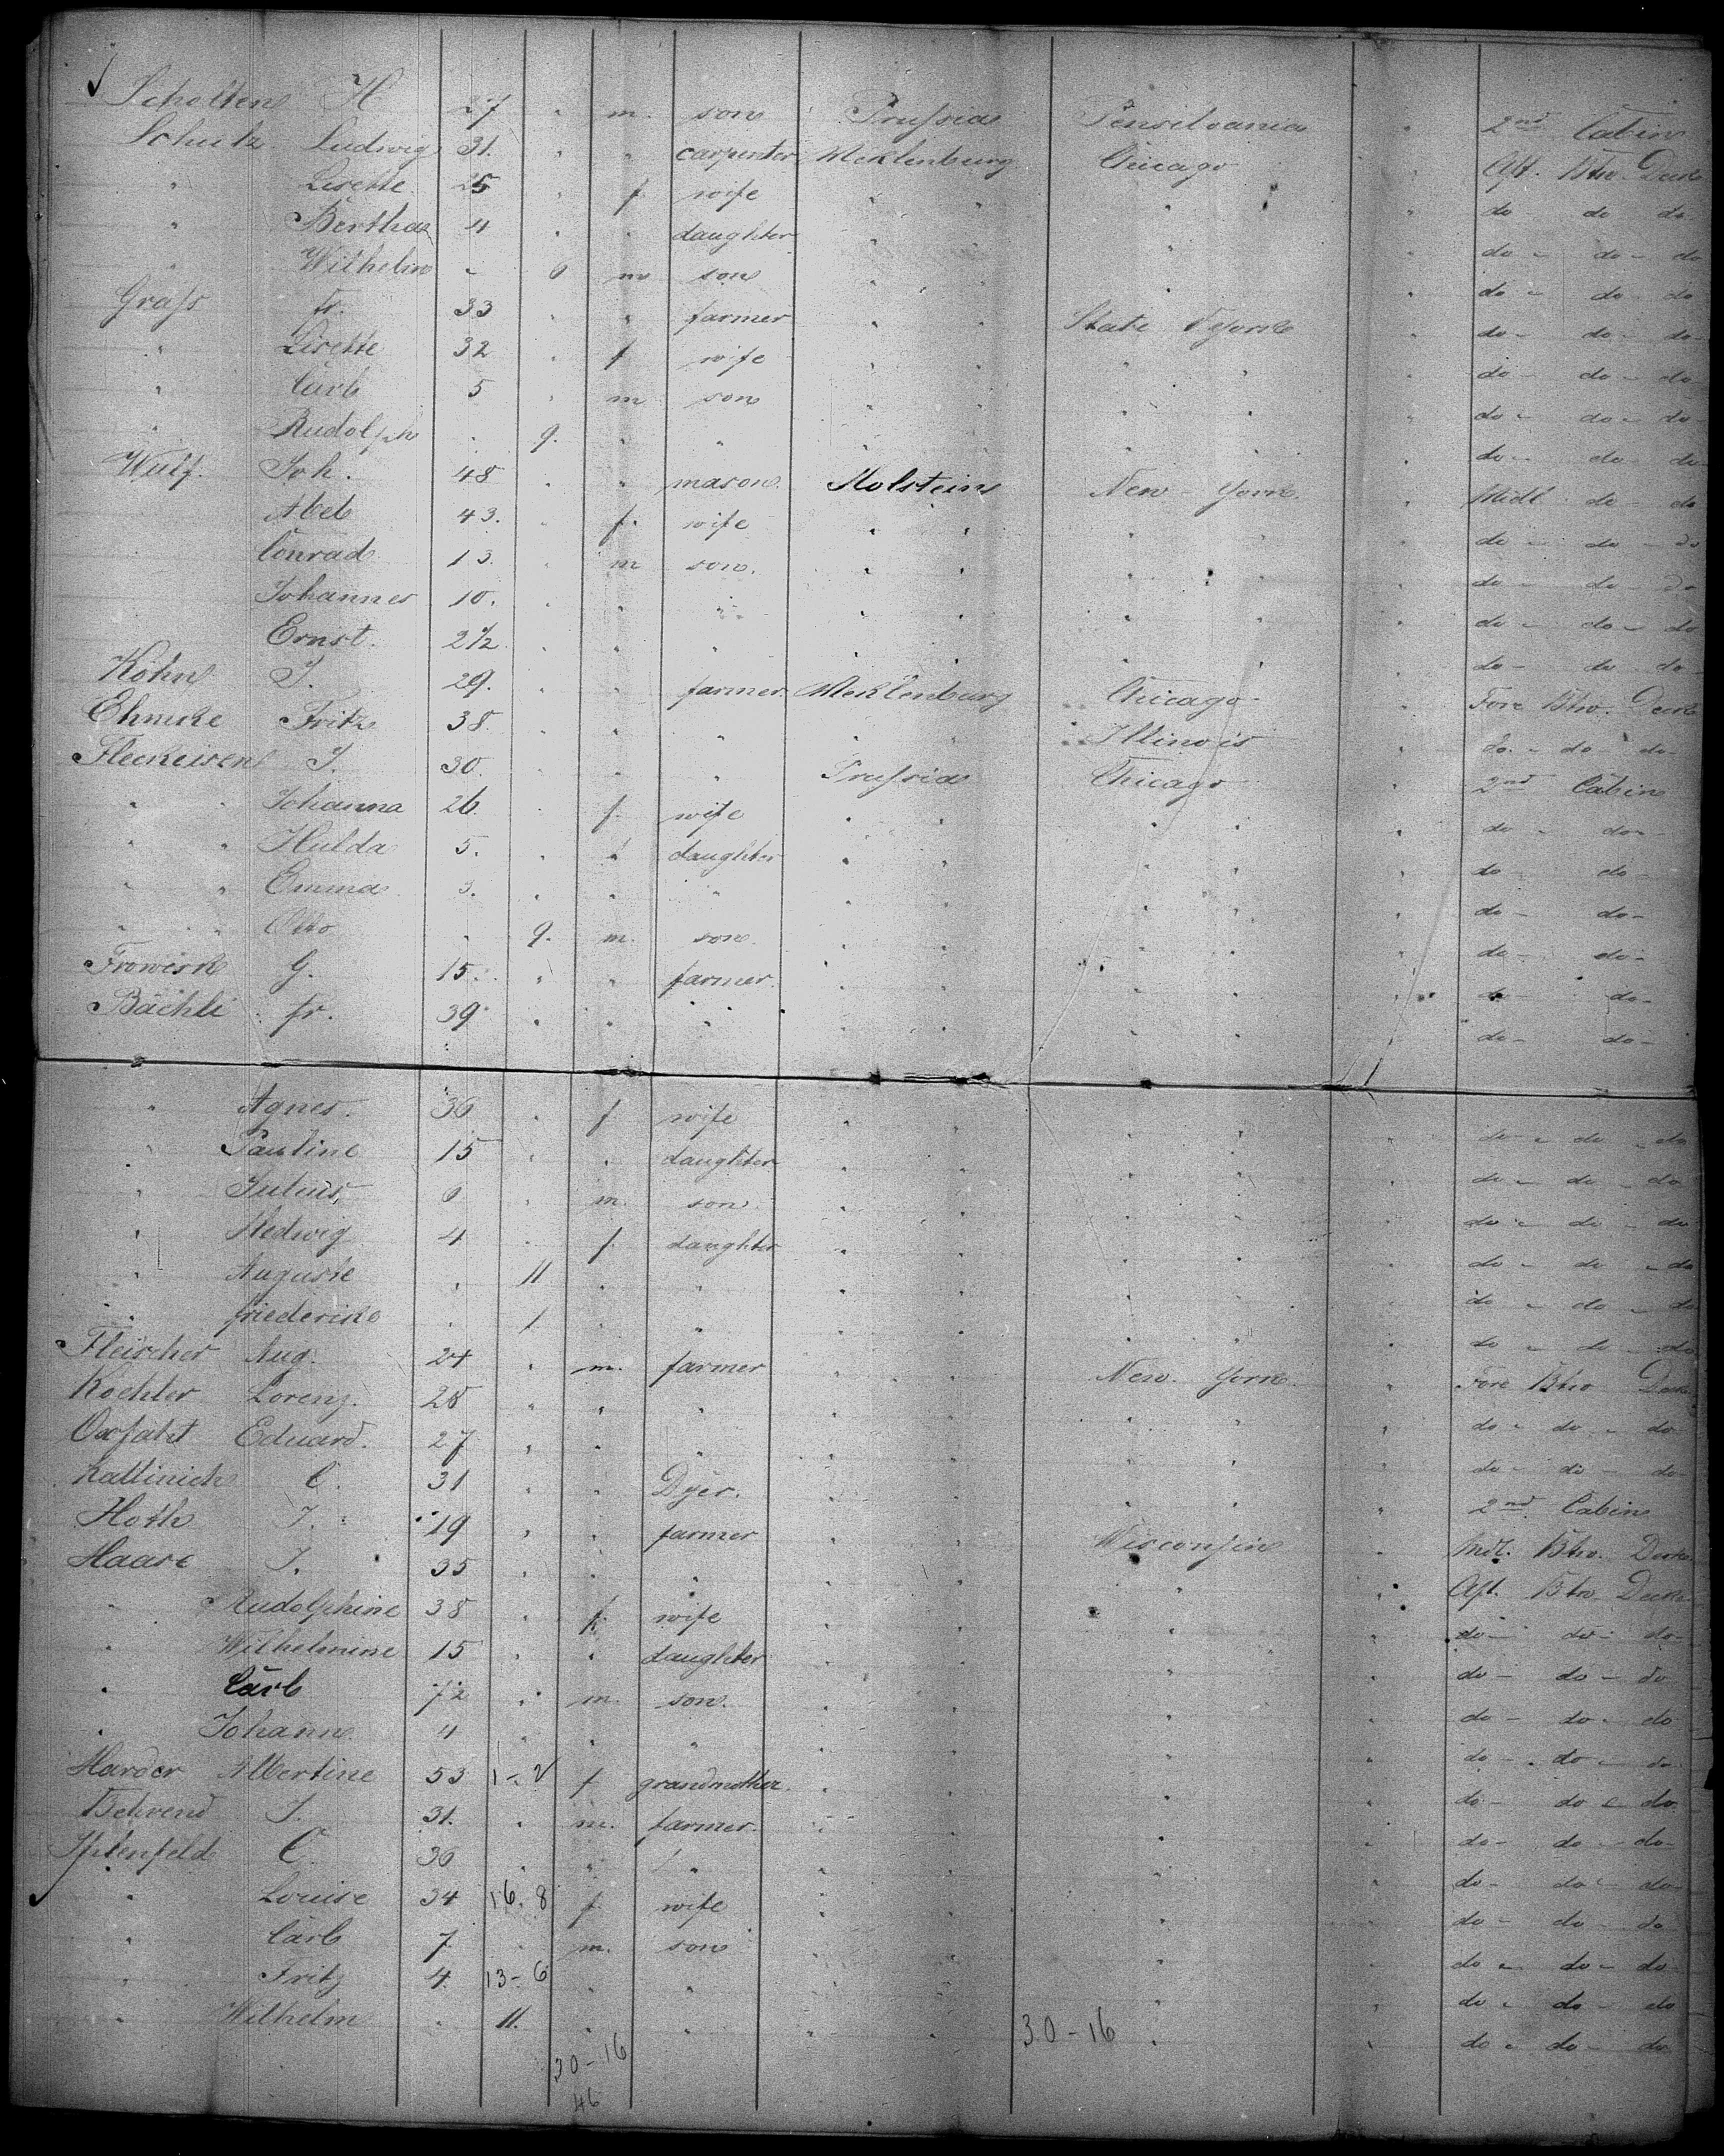 Scholten H 27 " m. son Prussia Pensilvania " 2nd Cabin
Schutz Ludwig 31. " " carpenter Meklenburg Chicago " Aft. Btw. Deck
" Lisette 25 " f wife " " " " do do do
" Bertha 4 " " daughter " " " " do - do - do
" Wilhelm - 6 m son " " " " do - do - do
Grass Fr. 33 " " farmer " " State N York " do - do - do -
" Lisette 32 " f wife " " " " do - do - do
" Carl 5 " m son " " " " do - do - do
" Rudolph " 9. " " " " " " do - do - do
Wulf. Joh. 48 " " mason. Holstein New - York. " Midl do - do
Abel 43. " f. wife " " " " do - do - do
Conrad 13. " m son. " " " " do - do - do
Johannes 10. " " " " " " " do - do - do
Ernst. 2 1/2 " " " " " " " do - do - do
Köhn J. 29. " " farmer Meklenburg Chicago - " Fore Btw. Deck
Ehmcke Fritz 38. " " " " " Illinois " do. - do - do -
Fleckeisen J. 30. " " " Prussia Chicago " 2nd Cabin
" " Johanna 26. " f. wife " " " " do - do -
" " Hulda 5. " f daughter " " " " do - do -
" " Emma 3. " " " " " " " do - do -
" " Otto " 9. m. son " " " " do - do -
G. 15. " " farmer. " " " " do - do -
Bächli fr. 39 " " " " " " " do - do -
" Agnes. 36 " f wife " " " do - do - do
Pauline 15 " " daughter " " " " do - do - do
" Julius, 6 " m. son. " " " " do - do - do
" Hedwig 4 " f. daughter " " " " do - do - do
" Auguste " 11 " " " " " " do - do - do
" friederike " 1 " " " " " " do - do - do
Fleischer Aug. 24 " m. farmer " " New. York. " Fore Btw Deck
Kochler Lorenz. 28 " " " " " " " do - do - do
Oxfaht Eduard. 27 " " " " " " " do - do - do
Kallinich C. 31 " " Dyer. " " " " 2nd Cabin
Hoth J. 19 " " farmer " " Wisconsin " Mdl. Btw. Deck
Haase J. 35 " " " " " " " Aft. Btw. Deck
" Rudolphine 38 " f. wife " " " " do - do - do -
" Wilhelmine 15 " " daughter " " " " do - do - do
" Carl " m. son. " " " " do - do - do
" Johann 4 " " " " " " " do - do - do
Harder Albertine 53 1-2 f grandmother. " " " " do - do - do
Behrend J. 31. " m. farmer. " " " " do - do - do -
Ihlenfeld C. 36 " " " " " " " do - do - do -
" Louise 34 16. 8 f. wife " " " " do - do - do
" Carl 7 " m. son " " " " do - do - do
" Fritz 4. 13-6 " " " " " " do - do - do
" Wilhelm " 11. " " " " 30-16 " " do - do - do
30-16
46